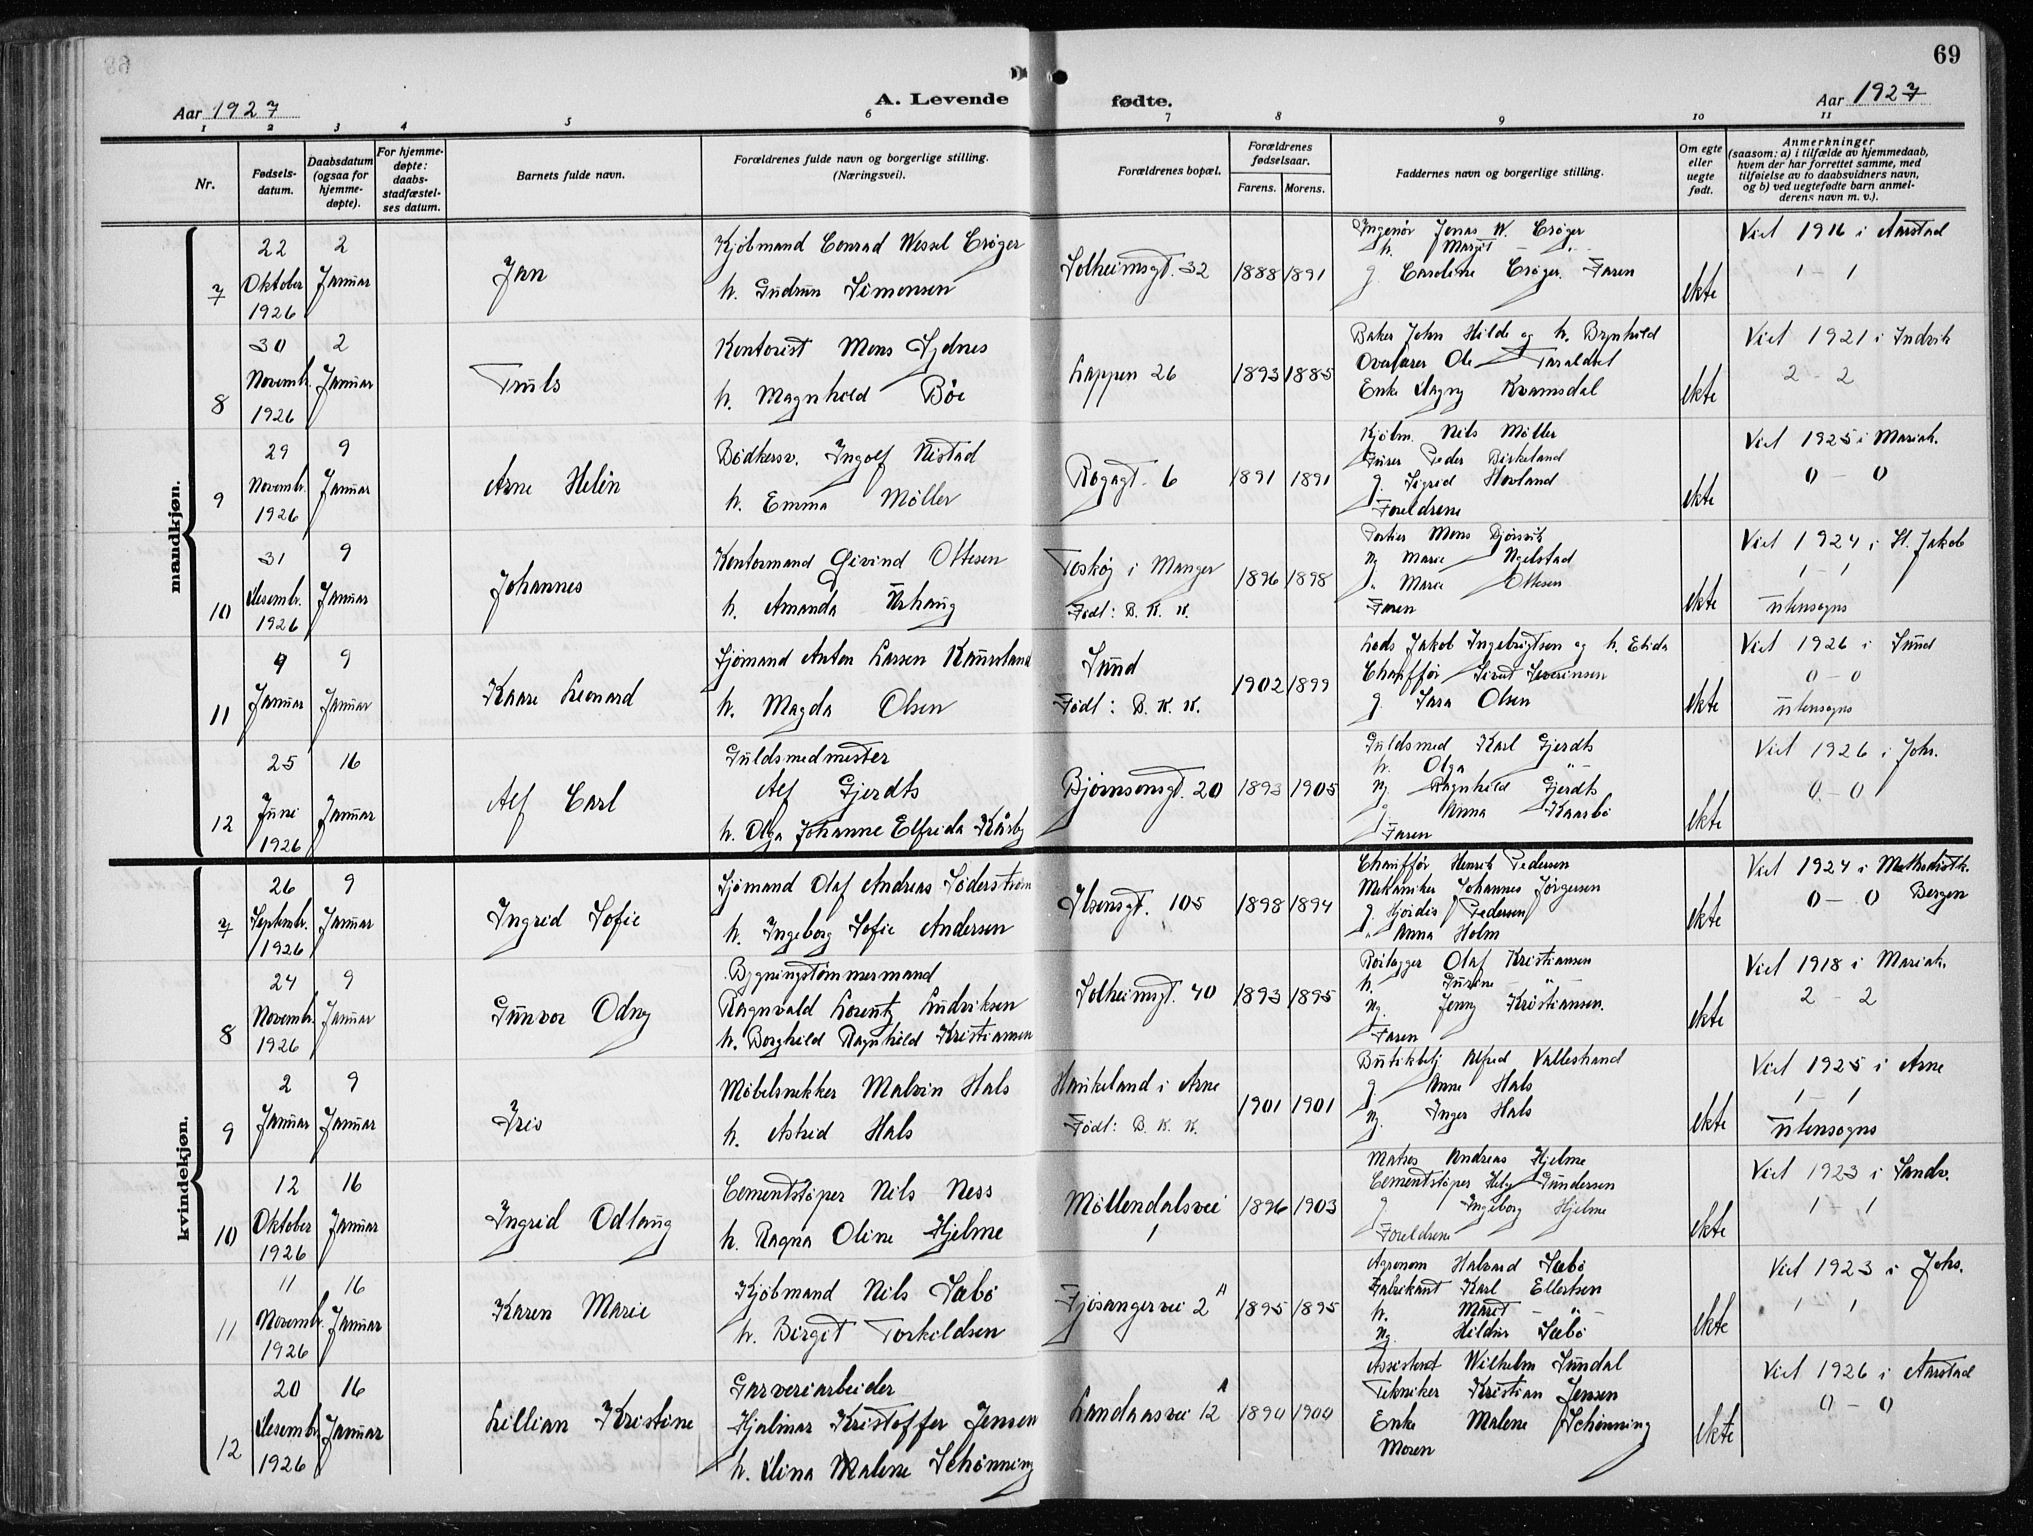 69
Aar 1927
A. Levende fødte.
Aar 1927
1 2 3 4 5 6 7 8 9 10 11
Nr.
Fødsels-
datum.
Daabsdatum
(ogsaa for
hjemme-
døpte).
For hjemme-
døpte:
daabs-
stadfæstel-
ses datum.
Barnets fulde navn.
Forældrenes fulde navn og borgerlige stilling.
(Næringsvei).
Forældrenes bopæl.
Forældrenes
fødselsaar.
Farens. Morens.
Faddernes navn og borgerlige stilling.
Om egte
eller
uegte
født.
Anmerkninger
(saasom: a) i tilfælde av hjemmedaab,
hvem der har forrettet samme, med
tilføielse av to daabsvidners navn,
og b) ved uegtefødte barn anmel-
derens navn m. v.).
mandkjøn.
7
22
Oktober
1926
2
Januar
Jan
Kjøbmand Conrad Wessel Crøger
h. Gudrun Simonsen
Solheimsgt. 32
1888 1891
Ingeniør Jonas W. Crøger
h. Margit - " -
g. Caroline Crøger. Faren
ekte
Viet 1916 i Aarstad
1 - 1
8
30
Novembr.
1926
2
Januar
Truls
Kontorist Mons Sydnes
h. Magnhild Böe
Lappen 26
1893 1885
Baker John Hilde og h. Brynhild
Ole Taraldset
Enke Dagny Kvamsdal
ekte
Viet 1921 i Indvik
2 - 2
9
29
Novembr.
1926
9
Januar
Arne Helin
Bödkersv. Ingolf Nistad
h. Emma Møller
Rogagt. 6
1891 1891
Kjöbm. Nils Møller
Peder Birkeland
g. Sigrid Hovland
Foreldrene
ekte
Viet 1925 i Mariak.
0 - 0
10
31
Desembr.
1926
9
Januar
Johannes
Kontormand Øivind Ottesen
h. Amanda Urhaug
Toskøy i Manger
Født: B. K. K.
1896 1898
Portier Mons
Ng. Marie
" Marie Ottesen
Faren
ekte
Viet 1924 i St. Jakob
1 - 1
utensogns
11
9
Januar
9
Januar
Kaare Leonard
Sjømand Anton Larsen Kausland
h. Magda Olsen
Sund
Født: B. K. K.
1902 1899
Lods Jakob Ingebrigtsen og h. Elida
Chauffør Sivert Severinsen
g. Sara Olsen
ekte
Viet 1926 i Sund
0 - 0
utensogns
12
25
Juni
1926
16
Januar
Alf Carl
Guldsmedmester
Alf Gjerdts
h. Olga Johanne Elfrida Kårby
Bjørnsonsgt. 20
1893 1905
Guldsmed Karl Gjerdts
h. Olga - " -
Ng. Ragnhild Gjerdts
g. Anna Kaarbø
Faren
ekte
Viet 1926 i Johs.
0 - 0
kvindekjøn.
7
26
Septembr.
1926
9
Januar
Ingrid Sofie
Sjømand Olaf Andreas Söderström
h. Ingeborg Sofie Andersen
Ibsensgt. 105
1898 1894
Chauffør Henrik Pedersen
Mekaniker Johannes Jørgensen
g. Hjördis Pedersen
" Anna Holm
ekte
Viet 1924 i Methodistk.
0 - 0 Bergen
8
24
Novembr.
1926
9
Januar
Gunvor Odny
Bygningstømmermand
Ragnvald Lorentz Ludviksen
h. Borghild Ragnhild Kristiansen
Solheimsgt. 40
1893 1895
Rørlegger Olaf Kristiansen
h. Gurine - " -
Ng. Jenny Kristiansen.
Faren
ekte
Viet 1918 i Mariak.
2 - 2
9
2
Januar
9
Januar
Iris
Møbelsnekker Malvin Hals
h. Astrid Hals
Haukeland i Arne
Født: B. K. K.
1901 1901
Butikkbetj Alfred Vallestrand
g. Anne Hals
Ng. Inger Hals
ekte
Viet 1925 i Arne
1 - 1
utensogns
10
12
Oktober
1926
16
Januar
Ingrid Odlaug
Cementstøper Nils Ness
h. Ragna Oline Hjelme
Möllendalsvei
1
1896 1903
Matros Andreas Hjelme
Cementstøper Helg. Gundersen
g. Ingeborg Hjelme
Foreldrene
ekte
Viet 1923 i Sandv.
1 - 1
11
11
Novembr.
1926
16
Januar
Karen Marie
Kjøbmand Nils Sæbö
h. Birgit Torkildsen
Fjösangervei 2 A
1895 1895
Agronom Halvard Sæbö
Fabrikant Karl Ellertsen
h. Marit - " -
Ng. Hildur Sæbö
ekte
Viet 1923 i Johs.
1 1
12
20
Desembr.
1926
16
Januar
Lillian Kristine
Garveriarbeider
Hjalmar Kristoffer Jensen
h. Dina Malene Schönning
Landaasvei 12 A
1890 1900
Assistent Wilhelm Sundal
Tekniker Kristian Jensen
Enke Malene Schønning
Moren
ekte
Viet 1926 i Aarstad
0 - 0